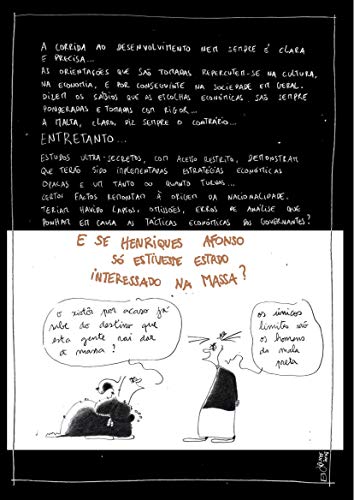 A CORRIDA AO DESENVOLVIMENTO NEM SEMPRE É CLARA
E PRECISA...
AS ORIENTAÇÕES QUE SÃO TOMADAS REPERCUTEM-SE NA CULTURA,
NA ECONOMIA, E POR CONSEGUINTE NA SOCIEDADE EM GERAL.
DIZEM OS SÁBIOS QUE AS ESCOLHAS ECONÓMICAS, SÃO SEMPRE
PONDERADAS E TOMADAS COM RIGOR...
A MALTA, CLARO, DIZ SEMPRE O CONTRÁRIO...
ENTRETANTO...
ESTUDOS ULTRA-SECRETOS, COM ACESSO RESTRITO, DEMONSTRAM
QUE TERÃO SIDO IMPLEMENTADAS ESTRATÉGIAS ECONÓMICAS
OPACAS E UM TANTO OU QUANTO TURVAS...
CERTOS FACTOS REMONTAM À ORIGEM DA NACIONALIDADE.
TERIAM HAVIDO LAPSOS, OMISSÕES, ERROS DE ANÁLISE QUE
PONHAM EM CAUSA AS TÁCTICAS ECONÓMICAS DOS GOVERNANTES?
E SE HENRIQUES AFONSO
SÓ ESTIVESSE ESTADO
INTERESSADO NA MASSA?
o xotôr por acaso já
sabe do destino que
esta gente vai dar
à massa?
os únicos
limites são
os homens
da mala
preta